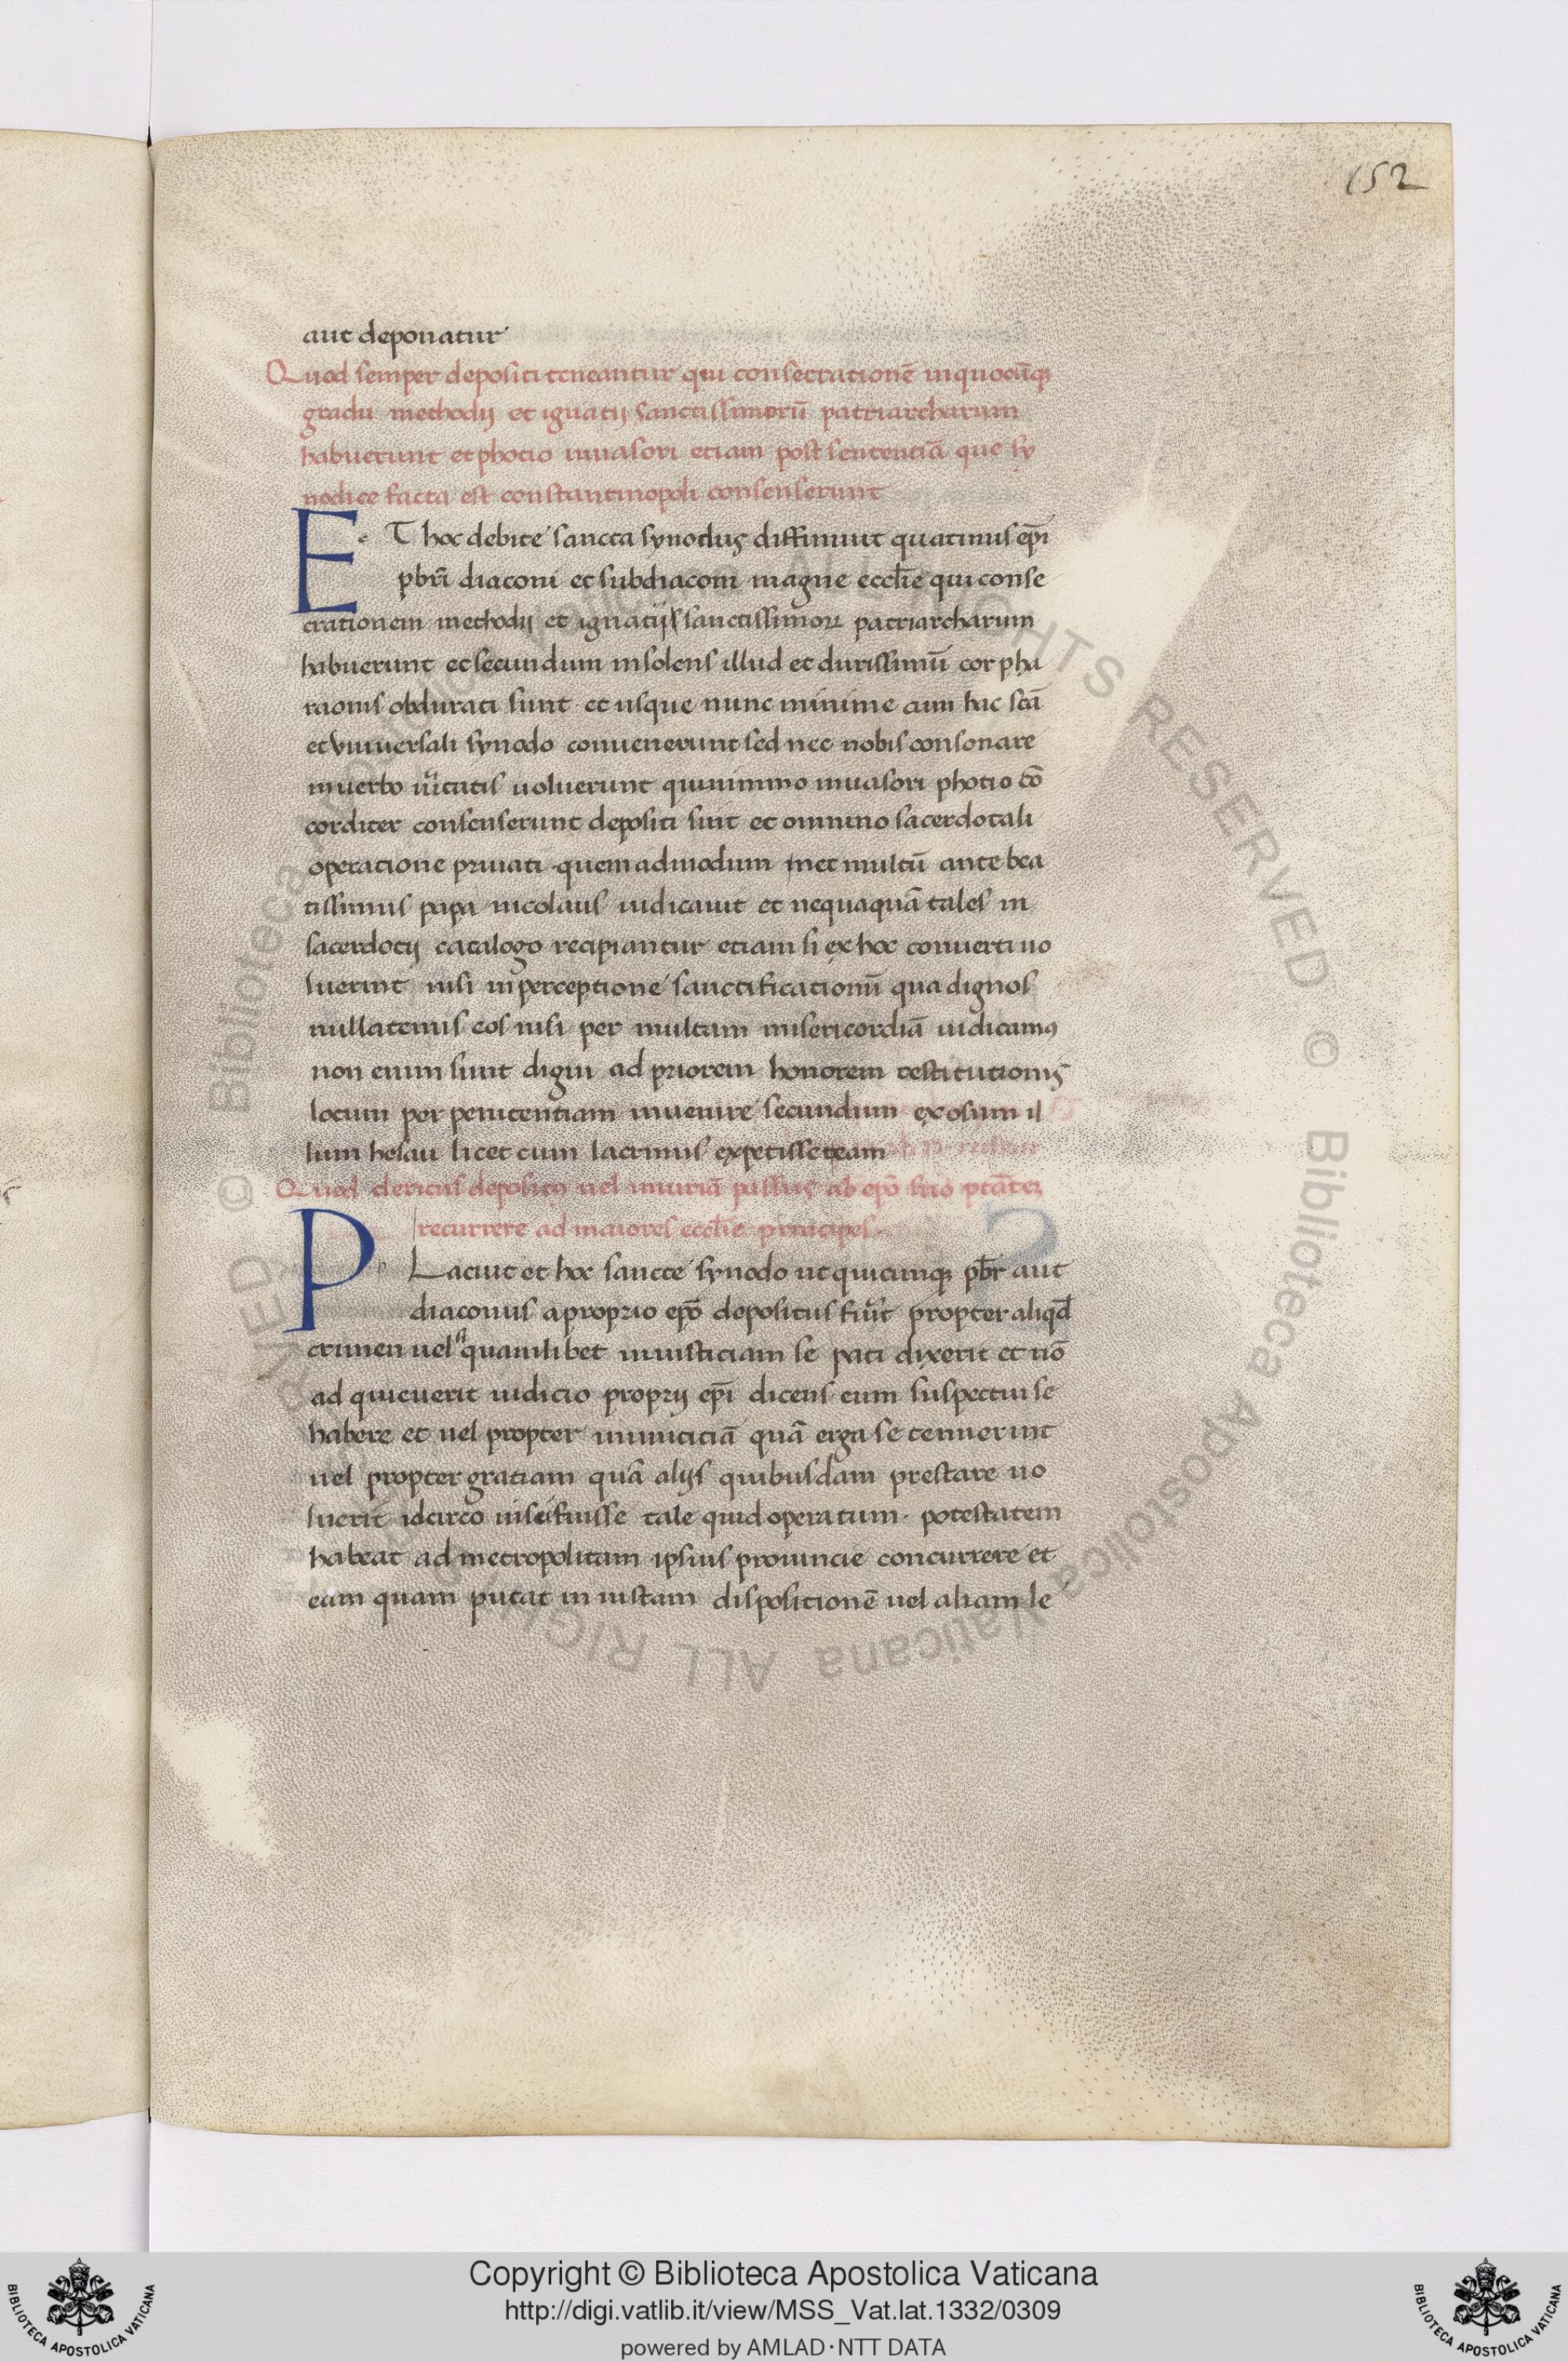 152
aut deponatur
Quod semper depositi teneantur qui consecrationē inquocūq;
gradu methodij et ignatij sanctissimorū patriarcharum
habuerunt et photio inuasori etiam post sententiā que sy
nodice facta est constantinopoli consenserunt
ET hoc debite sancta synodus diffiniuit quatinus ep̄i
pbr̄i diaconi et subdiaconi magne eccl̄ie qui conse
crationem methodij et ignatij sanctissimoꝝ patriarcharum
habuerunt et secundum insolens illud et durissimū cor pha
raonis obdurati sunt et usque nunc minime cum hac scā
et vniuersali synodo conuenerunt sed nec nobis consonare
inuerbo ūitatis uoluerunt quinimmo inuasori photio cō
corditer consenserunt depositi sint et omnino sacerdotali
operatione priuati quemadmodum et multū ante bea
tissimus papa nicolaus iudicauit et nequaquā tales in
sacerdotij catalogo recipiantur etiam si ex hoc conuerti uo
luerint nisi in perceptione sanctificationū qua dignos
nullatenus eos nisi per multam misericordiā iudicamꝰ
non enim sunt digni ad priorem honorem restitutionis
locum per penitentiam inuenire secundum exosum il
lum hesau licet cum lacrimis expetisset eam
Quod clericus depositꝰ uel iniuriā passus ab ep̄o suo
recurrere ad maiores eccl̄ie principes
PLacuit et hoc sancte synodo ut quicunq; pbr̄ aut
diaconus a proprio ep̄o depositus fuīt propter aliqd̄
crimen uel si quamlibet iniusticiam se pati dixerit et nō
ad quieuerit iudicio proprij ep̄i dicens eum suspectui se
habere et uel propter inimiciciā quā erga se tenuerint
uel propter gratiam quā alijs quibusdam prestare uo
luerit idcirco in se fuisse tale quid operatum potestatem
habeat ad metropolitam ipsius prouincie concurrere et
eam quam putat in iustam dispositionē uel aliam le
Copyright © Biblioteca Apostolica Vaticana
http://digi.vatlib.it/view/MSS_Vat.lat.1332/0309
powered by AMLAD·NTT DATA
BIBLIOTECA APOSTOLICA VATICANA
BIBLIOTECA APOSTOLICA VATICANA
© Biblioteca Apostolica Vaticana ALL RIGHTS RESERVED © Biblioteca Apostolica Vaticana ALL RIGHTS RESERVED